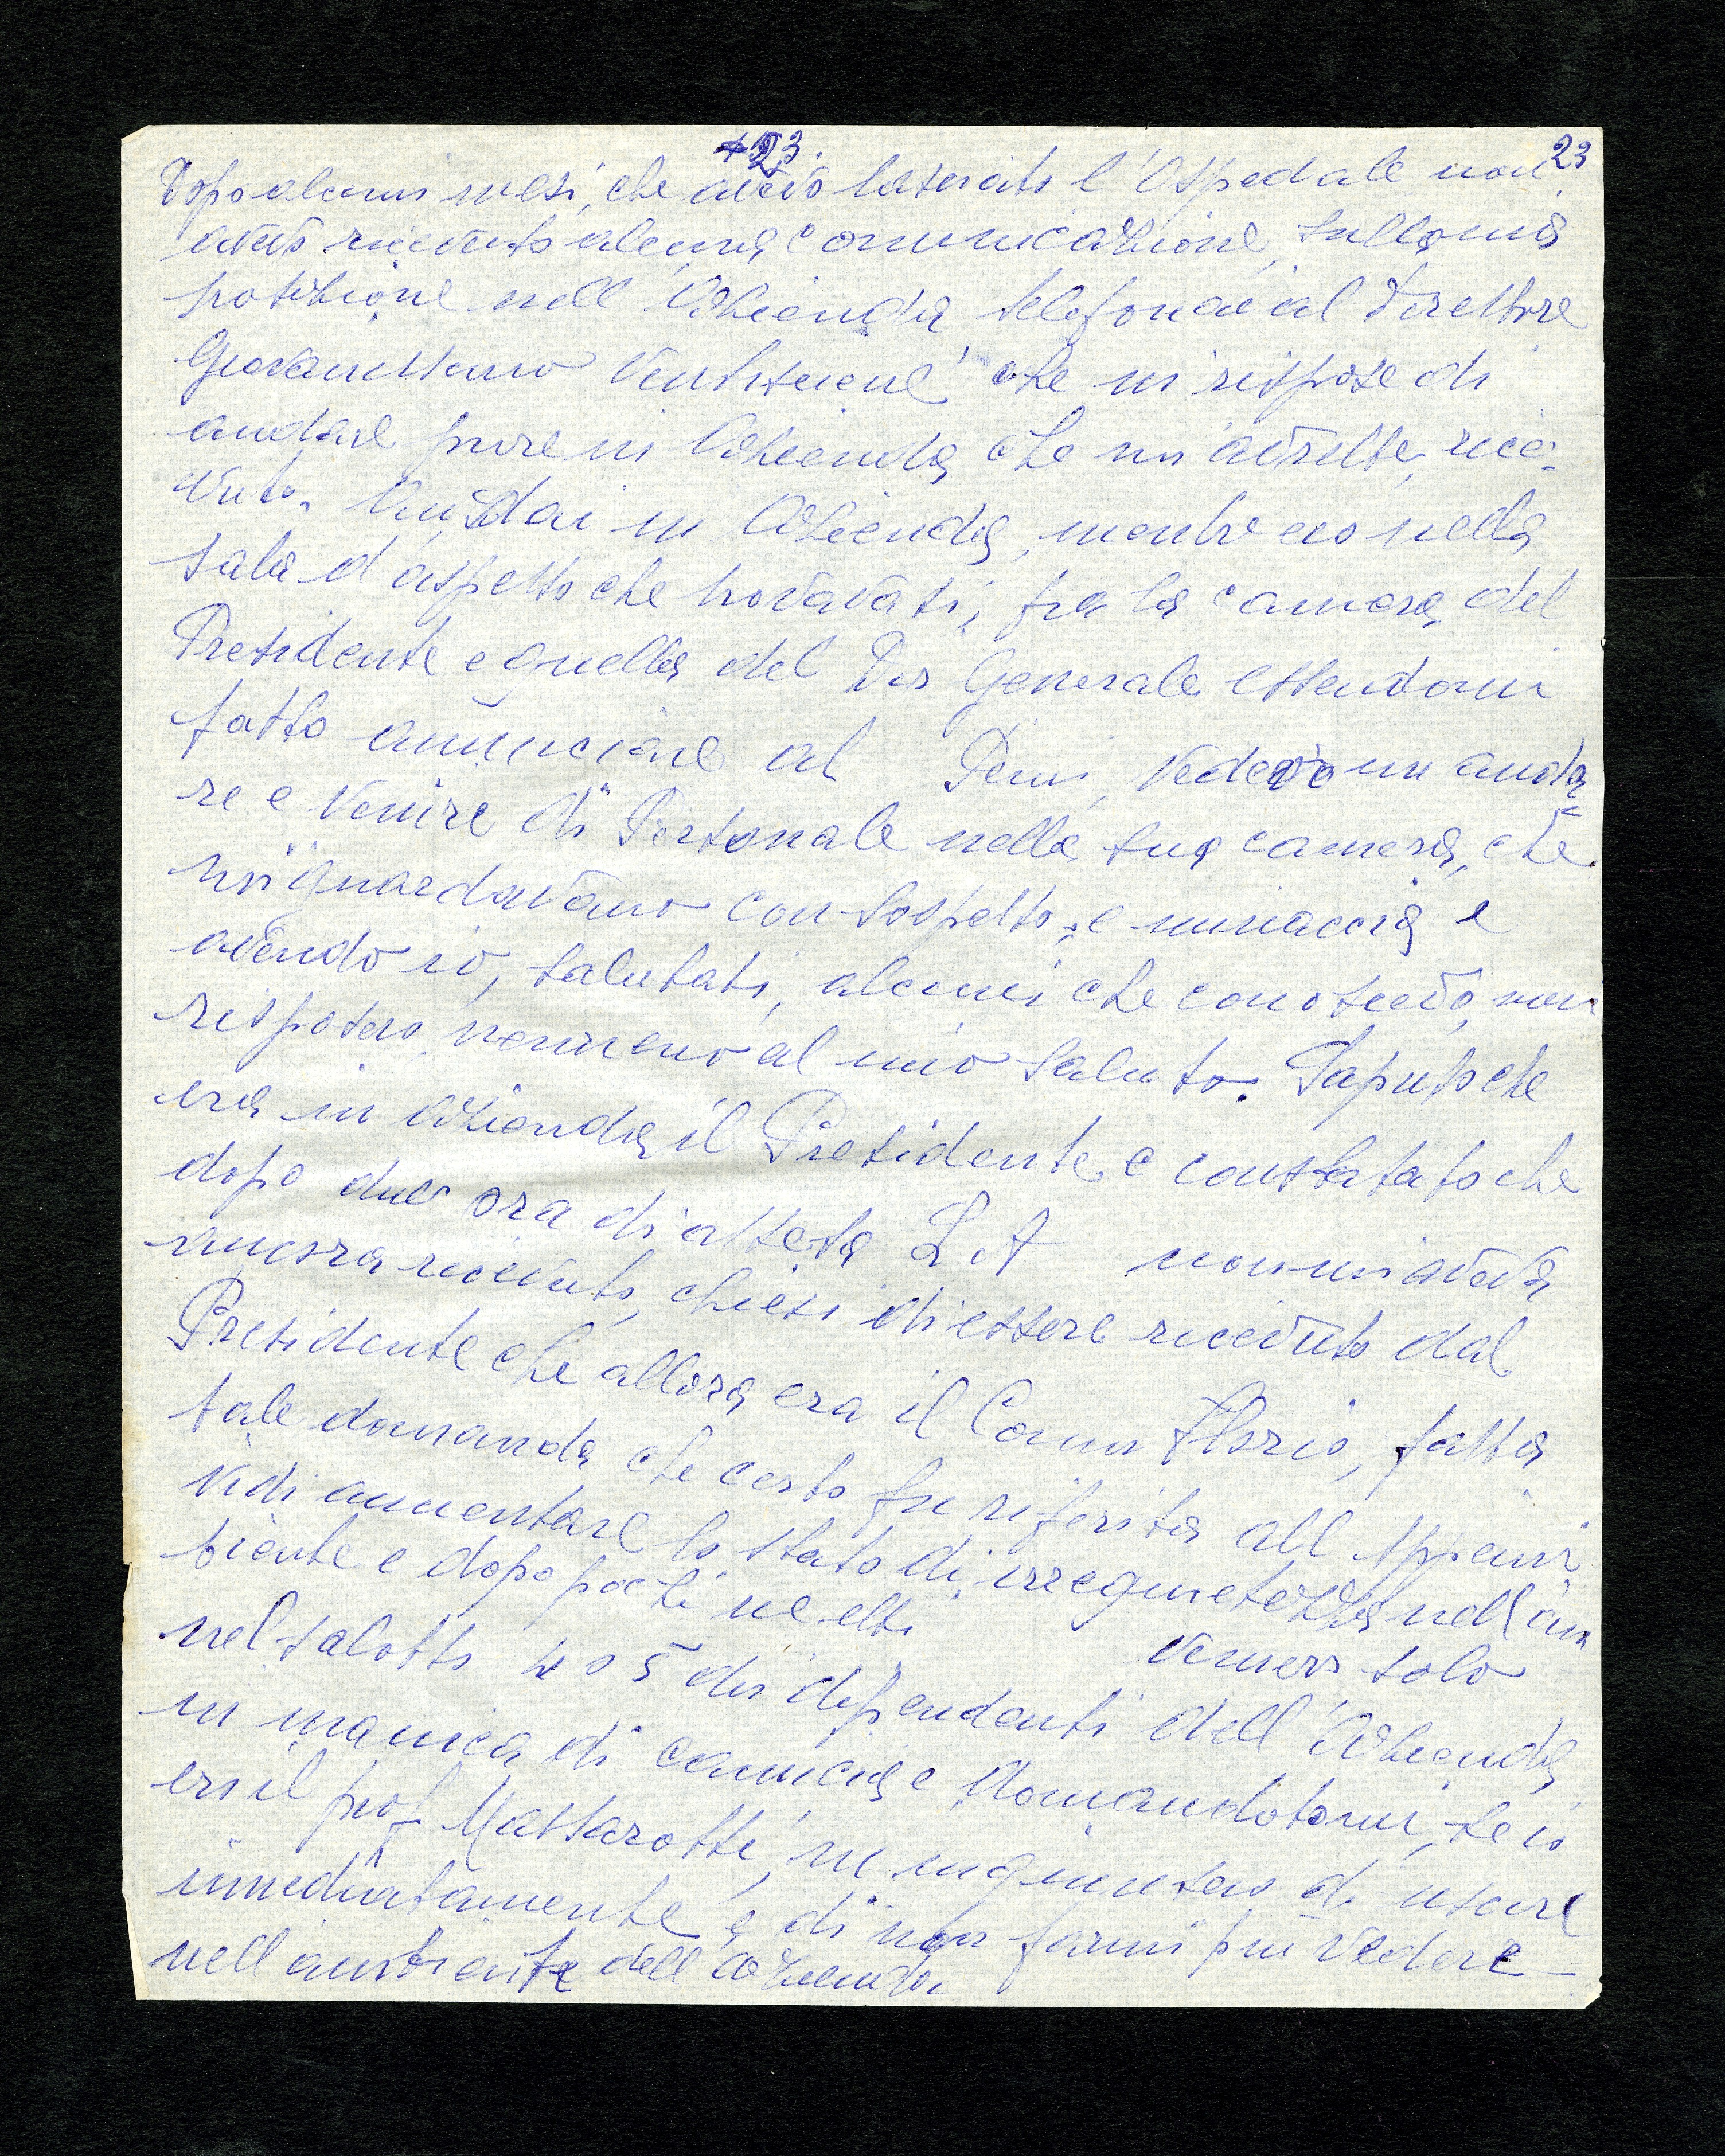 23. 23
Dopo alcuni mesi, che avevo lasciato l'Ospedale non
avevo ricevuto alcuna comunicazione, sulla mia
posizione nell'Azienda telefonai al Direttore
che mi rispose di
andare pure in Azienda che mi avrebbe, rice=
vuto. Andai in Azienda, mentre ero nella
sala d'aspetto che trovavasi, fra la camera, del
Presidente e quella, del Dir Generale essendomi
fatto annunciare al vedevo un anda
re e venire di Personale nella sua camera, che
mi guardavano con sospetto, e minaccia e
avendo io, salutati, alcuni che conoscevo, non
risposero nemmeno al mio saluto. Saputo che
era in Azienda il Presidente e constatato che
dopo due ora di attesa non mi aveva
ancora ricevuto, chiesi di essere ricevuto dal
Presidente che allora era il Comm Florio, fatta
tale domanda che certo fu riferita all
vidi aumentare lo stato di irrequietezza nell'am
biente e dopo pochi vennero solo
nel salotto 4 o 5 dei dipendenti dell'Azienda,
in manica di camicia e domandatomi, se io
ero il prof. Massarotti, mi ingiunsero di uscire
immediatamente, e di non farmi più vedere
nell'ambiente dell'Azienda